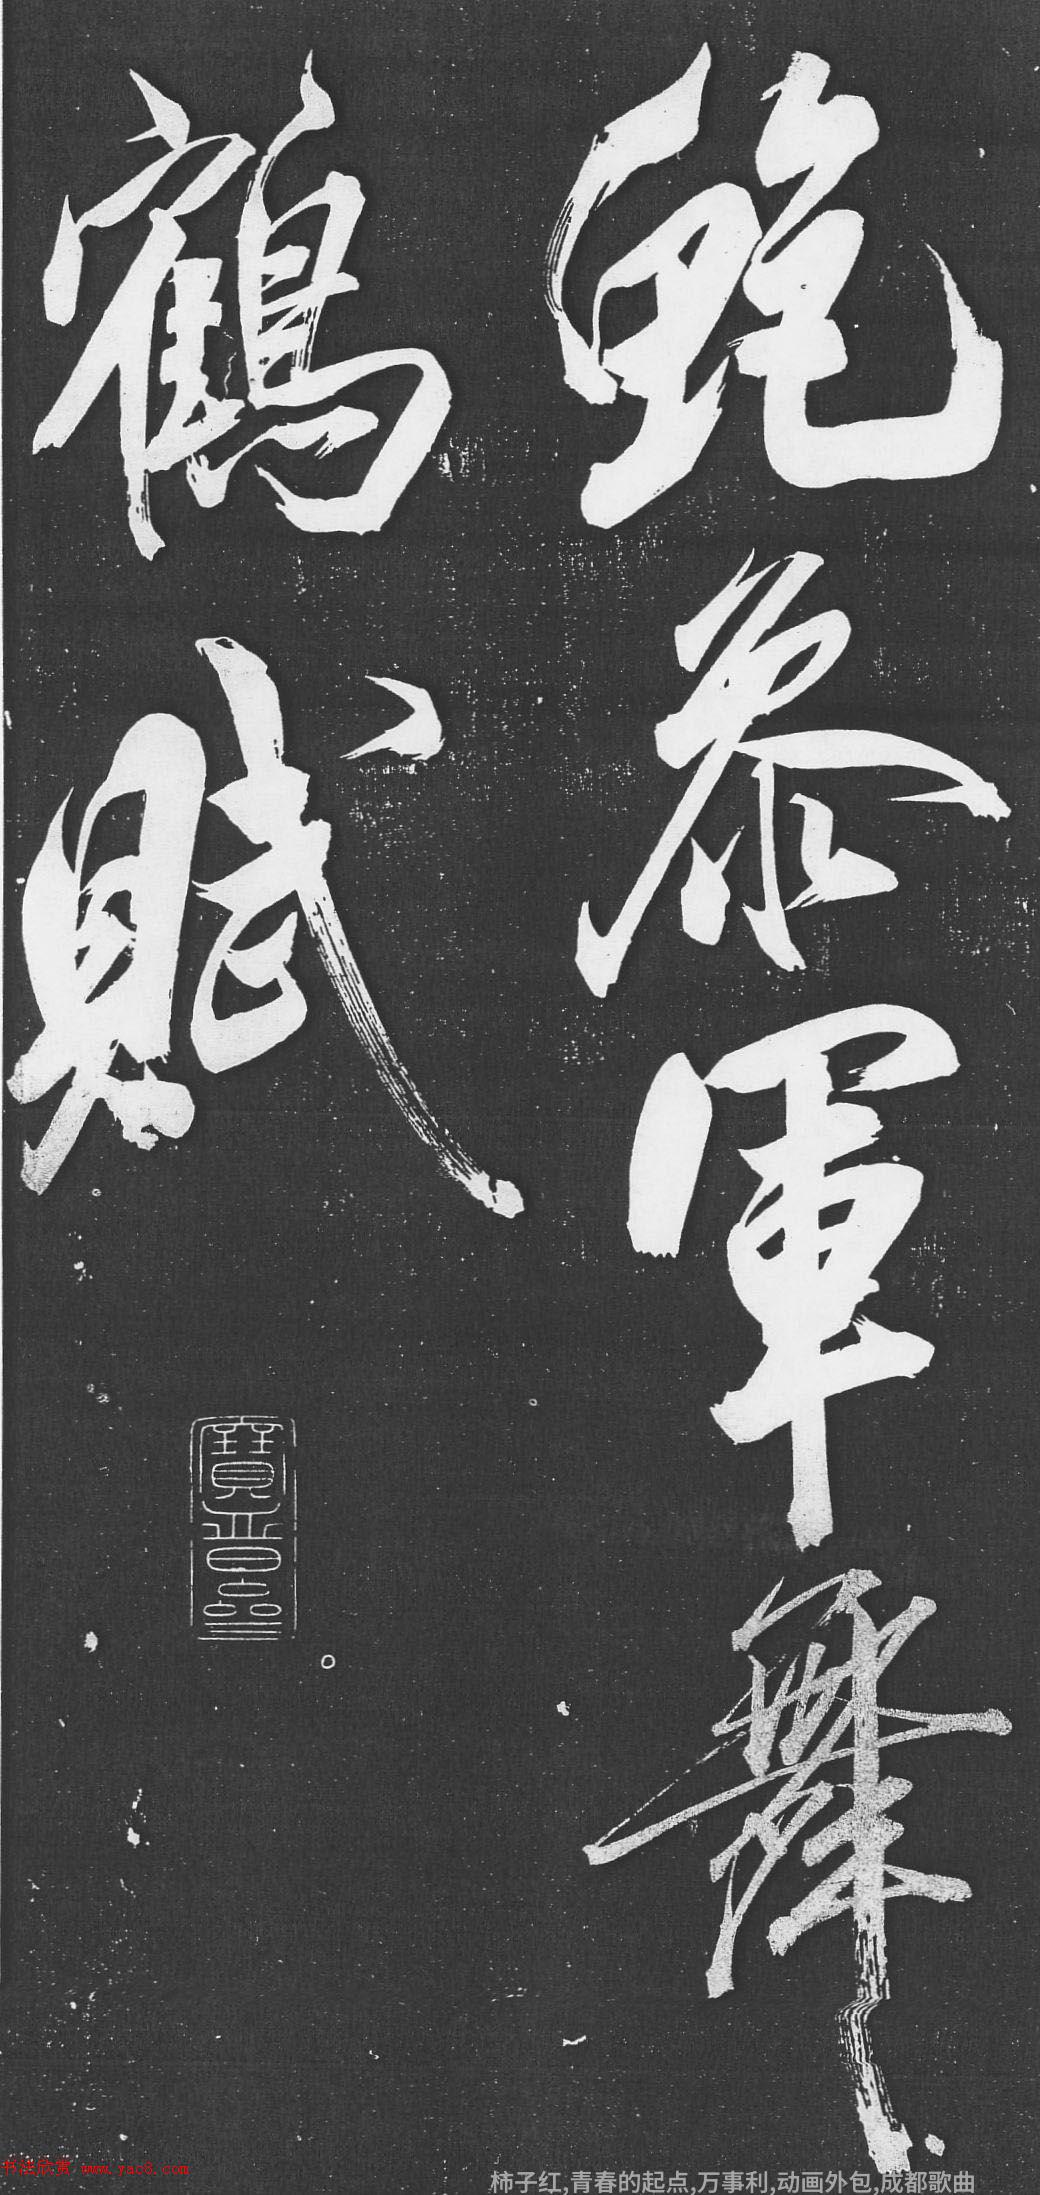 鮑叅軍舞
鶴賦
寶晉齋
书法欣赏 www.yac8.com
柿子红,青春的起点,万事利,动画外包,成都歌曲